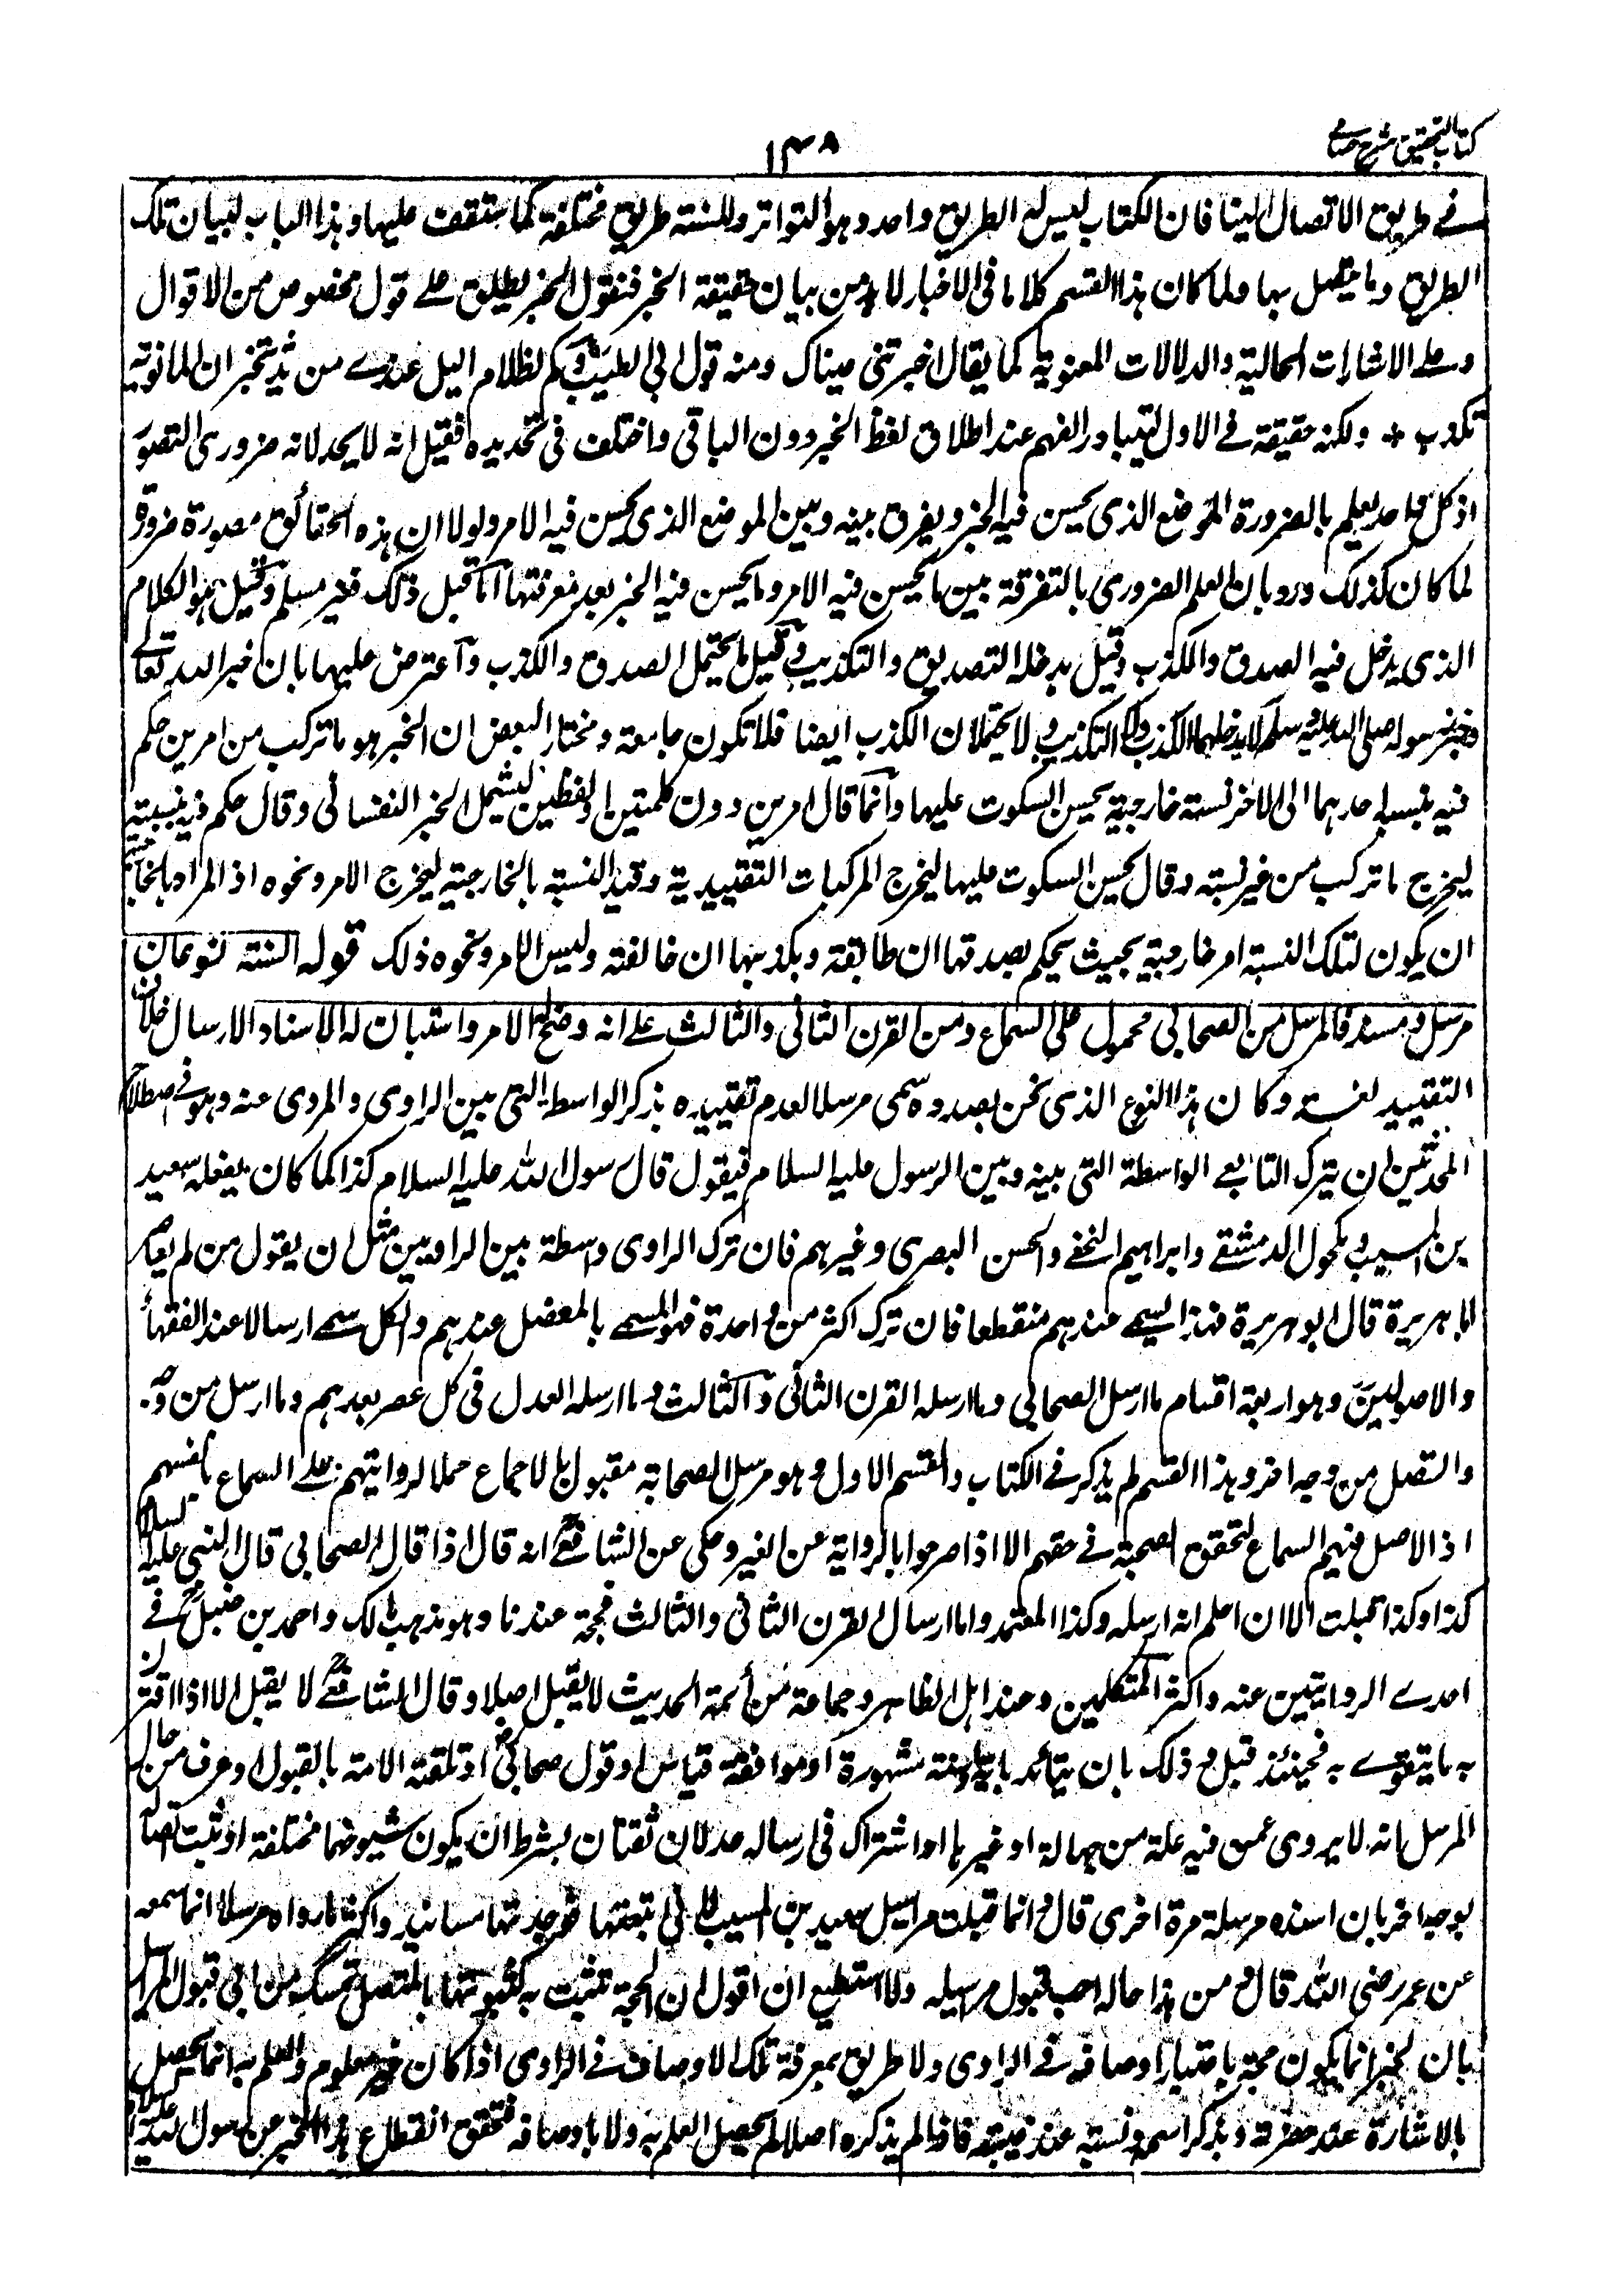 كتاب التحقيق شرح حسامي
١٣٨
في طريق الاتصال الينا فان الكتاب ليس له الا طريق واحد وهو التواتر وللسنة طريق مختلفة كما ستقف عليها وهذا الباب لبيان تلك
الطريق وما يتصل بها ولما كان هذا القسم كلاما في الاخبار لا بد من بيان حقيقة الخبر فنقول الخبر يطلق على قول مخصوص من الاقوال
وعلى الاشارات الحالية والدلالات المعنوية كما يقال اخبرتني عيناك ومنه قول ابي الطيب وكم لظلام اليل عندے من يد تخبر ان المانوية
تكذب + ولكنه حقيقة في الاول لتبادر الفهم عند اطلاق لفظ الخبر دون الباقي واختلف في تحديده فقيل انه لا يحد لانه ضروري التصور
اذ كل واحد يعلم بالضرورة الموضع الذي يحسن فيه الخبر ويفرق بينه وبين الموضع الذي يحسن فيه الامر ولولا ان هذه الحقائق مصورة ضرورة
لما كان كذلك ورد بان العلم الضروري بالتفرقة بين ما يحسن فيه الامر وما يحسن فيه الخبر بعد معرفتها اما قبل ذلك فغير مسلم وقيل هو الكلام
الذي يدخل فيه الصدق والكذب وقيل يدخله التصديق والتكذيب وقيل ما يحتمل الصدق والكذب واعترض عليها بان خبر الله تعالى
وخبر رسوله صلى الله عليه وسلم لا يدخلهما الكذب ولا التكذيب ولا يحتملان الكذب ايضا فلا تكون جامعة ومختار البعض ان الخبر هو ما تركب من امرين حكم
فيه بنسبة احدهما الى الاخر نسبة خارجية يحسن السكوت عليها وانما قال امرين دون كلمتين او لفظين ليشمل الخبر النفساني وقال حكم فيه بنسبة
ليخرج ما تركب من غير نسبة وقال يحسن السكوت عليها ليخرج المركبات التقييدية وقيد النسبة بالخارجية ليخرج الامر ونحوه اذ المراد بالخارجية
ان يكون لتلك النسبة امر خارجية بحيث يحكم بصدقها ان طابقته وبكذبها ان خالفته وليس للامر ونحوه ذلك قوله السنة نوعان
مرسل ومسند فالمرسل من الصحابي محمول على السماع ومن القرن الثاني والثالث على انه وضح له الامر واستبان له الاسناد الارسال خلاف
التقييد لغة وكان هذا النوع الذي نحن بصدده سمى مرسلا لعدم تقييده بذكر الواسطة التي بين الراوي والمروي عنه وهو في اصطلاح
المحدثين ان يترك التابعي الواسطة التي بينه وبين الرسول عليه السلام فيقول قال رسول الله عليه السلام كذا كما كان يفعله سعيد
بن المسيب ومكحول الدمشقي وابراهيم النخعي والحسن البصري وغيرهم فان ترك الراوي واسطة بين الراويين مثل ان يقول من لم يعاصر
ابا هريرة قال ابو هريرة فهذا يسمى عندهم منقطعا فان ترك اكثر من واحدة فهو المسمى بالمعضل عندهم والكل يسمى ارسالا عند الفقهاء
والاصوليين وهو اربعة اقسام ما ارسل الصحابي وما ارسله القرن الثاني والثالث وما ارسله العدل في كل عصر بعدهم وما ارسل من وجه
واتصل من وجه اخر وهذا القسم لم يذكر في الكتاب والقسم الاول وهو مرسل الصحابة مقبول بالاجماع حملا لروايتهم على السماع بانفسهم
اذ الاصل فيهم السماع لتحقق الصحبة في حقهم الا اذا صرحوا بالرواية عن الغير وحكي عن الشافعي انه قال اذا قال الصحابي قال النبي عليه السلام
كذا وكذا قبلت الا ان اعلم انه ارسله وكذا المعتمد واما ارسال القرن الثاني والثالث فحجة عندنا وهو مذهب مالك واحمد بن حنبل في
احدے الروايتين عنه واكثر المتكلمين وعند اهل الظاهر وجماعة من ائمة الحديث لا يقبل اصلا وقال الشافعي لا يقبل الا اذا اقترن
به ما يتقوے به فحينئذ قبل وذلك بان يتائد باية او سنة مشهورة او موافقة قياس او قول صحابي او تلقته الامة بالقبول او عرف من حال
المرسل انه لا يروي عمن فيه علة من جهالة او غيرها او اشترك في ارساله عدلان ثقتان بشرط ان يكون شيوخهما مختلفة او ثبت اتصاله
بوجه اخر بان اسنده مرسله مرة اخرى قال وانما قبلت مراسيل سعيد بن المسيب لاني تتبعتها فوجدتها مسانيد واكثر ما رواه مرسلا انما سمعه
عن عمر رضي الله قال ومن هذا حاله احب قبول مراسيله ولا استطيع ان اقول ان الحجة تثبت به كثبوتها بالمتصل تمسك من ابى قبول المراسيل
بان الخبر انما يكون حجة باعتبار اوصاف في الراوي ولا طريق بمعرفة تلك الاوصاف في الراوي اذا كان غير معلوم والعلم به انما يحصل
بالاشارة عند حضرته وبذكر اسمه ونسبته عند غيبته فاذا لم يذكره اصلا لم يحصل العلم به ولا باوصافه فتحقق انقطاع هذا الخبر عن رسول الله عليه السلام